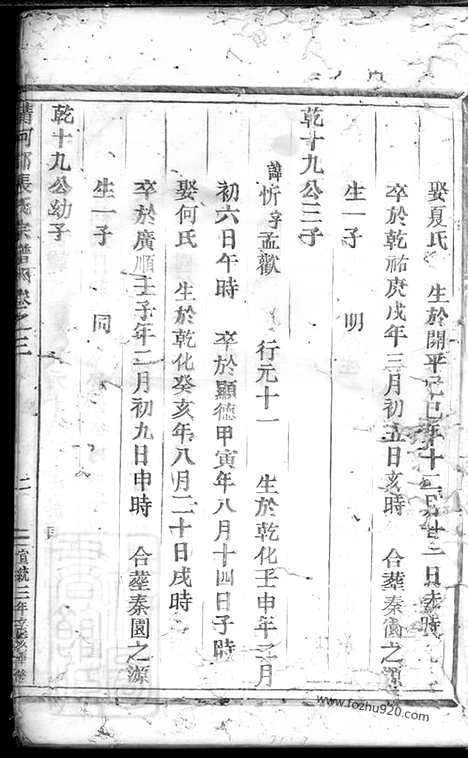 娶夏氏 生於開平己巳年十二月廿二日未時
卒於乾祐庚戌年三月初五日亥時 合塟秦園之源
生一子 明
乾十九公三子
諱忻字孟歡 行元十一 生於乾化壬申年二月
初六日午時 卒於顯德甲寅年八月十四日子時
娶何氏 生於乾化癸亥年八月二十日戌時
卒於廣順壬子年二月初九日申時 合塟秦園之源
生一子 同
乾十九公幼子
清河郡張氏宗譜 卷之三
宣統三年
www.fozhu920.com